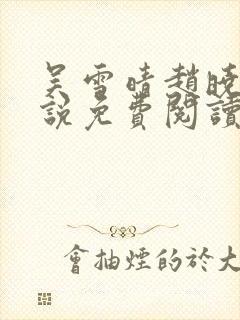 吴雪晴趙曉
說免費閱讀
會抽煙的於大